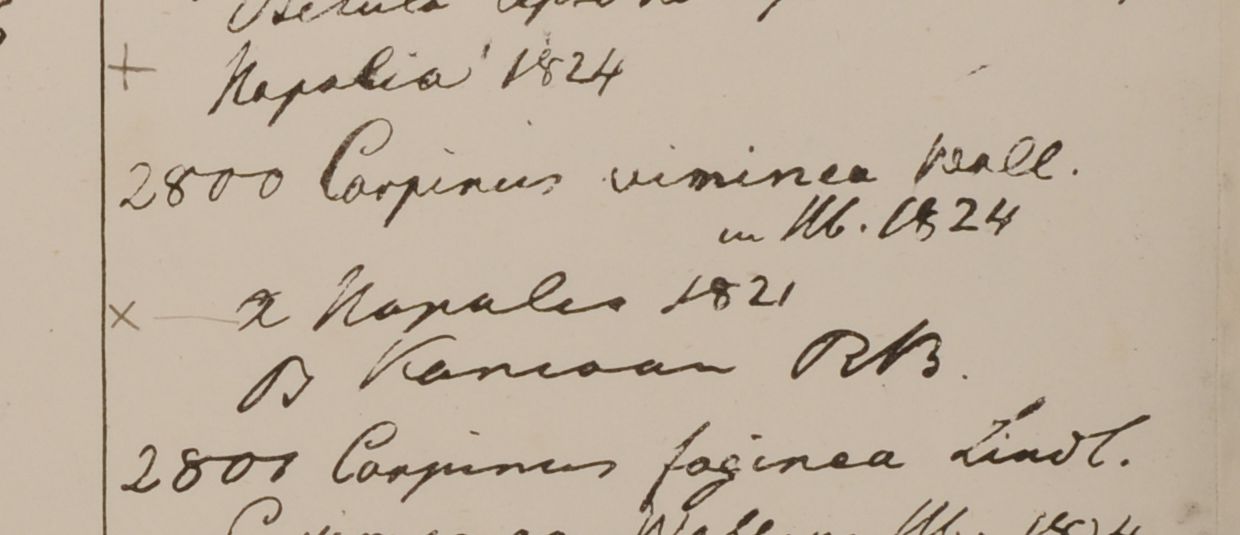 + Napalia 1824
2800 Carpinus viminea Wall.
in Hb. 1824
x α Napalia 1821
B Kamoun RB.
2801 Carpinus faginea Lindl.
Wall. Hb. 1824